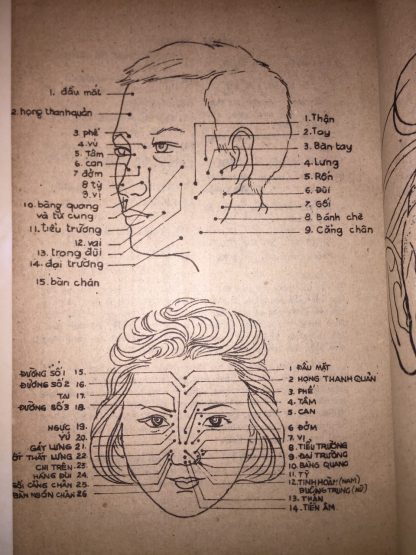 1. đầu mắt
2. họng thanh quản
3 phế
4. vú
5. Tâm
6. can
7 đởm
8 tỳ
9. vị
10. bàng quang
và tử cung
11. tiểu trường
12. vai
13. trong đùi
14. đại trường
15. bàn chân
1. Thận
2. Tay
3. Bàn tay
4. Lưng
5. Rốn
6. Đùi
7. Gối
8. Bánh chè
9. Cẳng chân
ĐƯỜNG SỐ 1 15.
ĐƯỜNG SỐ 2 16.
TAI 17.
ĐƯỜNG SỐ 3 18.
NGỰC 19.
VÚ 20.
GÁY LƯNG 21.
ỘT THẮT LƯNG 22
CHI TRÊN 23.
HÁNG ĐÙI 24
GỐI CẲNG CHÂN 25.
BÀN NGÓN CHÂN 26
1 ĐẦU MẶT
2 HỌNG THANH QUẢN
3. PHẾ
4. TÂM
5. CAN
6 ĐỞM
7. VỊ
8 TIỂU TRƯỜNG
9 ĐẠI TRƯỜNG
10 BÀNG QUANG
11. TỲ
12. TINH HOÀN (NAM)
BUỒNG TRỨNG (NỮ)
13. THẬN
14. TIỀN ÂM